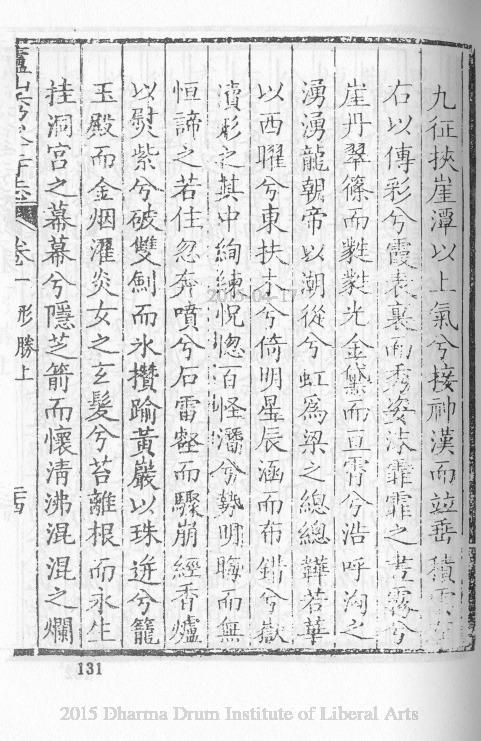 九征挾崖潭以上氣兮接神漢而並垂積雪
右以傳彩兮霞表裏而秀姿沫霏霏之晝霧兮
崖丹翠篠而㲯㲯光金黛而亘霄兮浩呼洶之
湧湧龍朝帝以潮從兮虹為梁之總總鞾若華
以西曜兮東扶木兮倚明星辰涵而布錯兮嶽
瀆彬之其中絢練怳惚百怪潘兮勢明晦而無
恒諦之若住忽奔噴兮石雷壑而驟崩經香爐
以熨紫兮破雙劍而氷攢踰黃巖以珠迸兮籠
玉殿而金烟濯炎女之玄髮兮苔離根而永生
挂洞宮之幕幕兮隱芝箭而懷清沸混混之爛
廬山 志 卷一 形勝上
131
2015-04-17
2015 Dharma Drum Institute of Liberal Arts